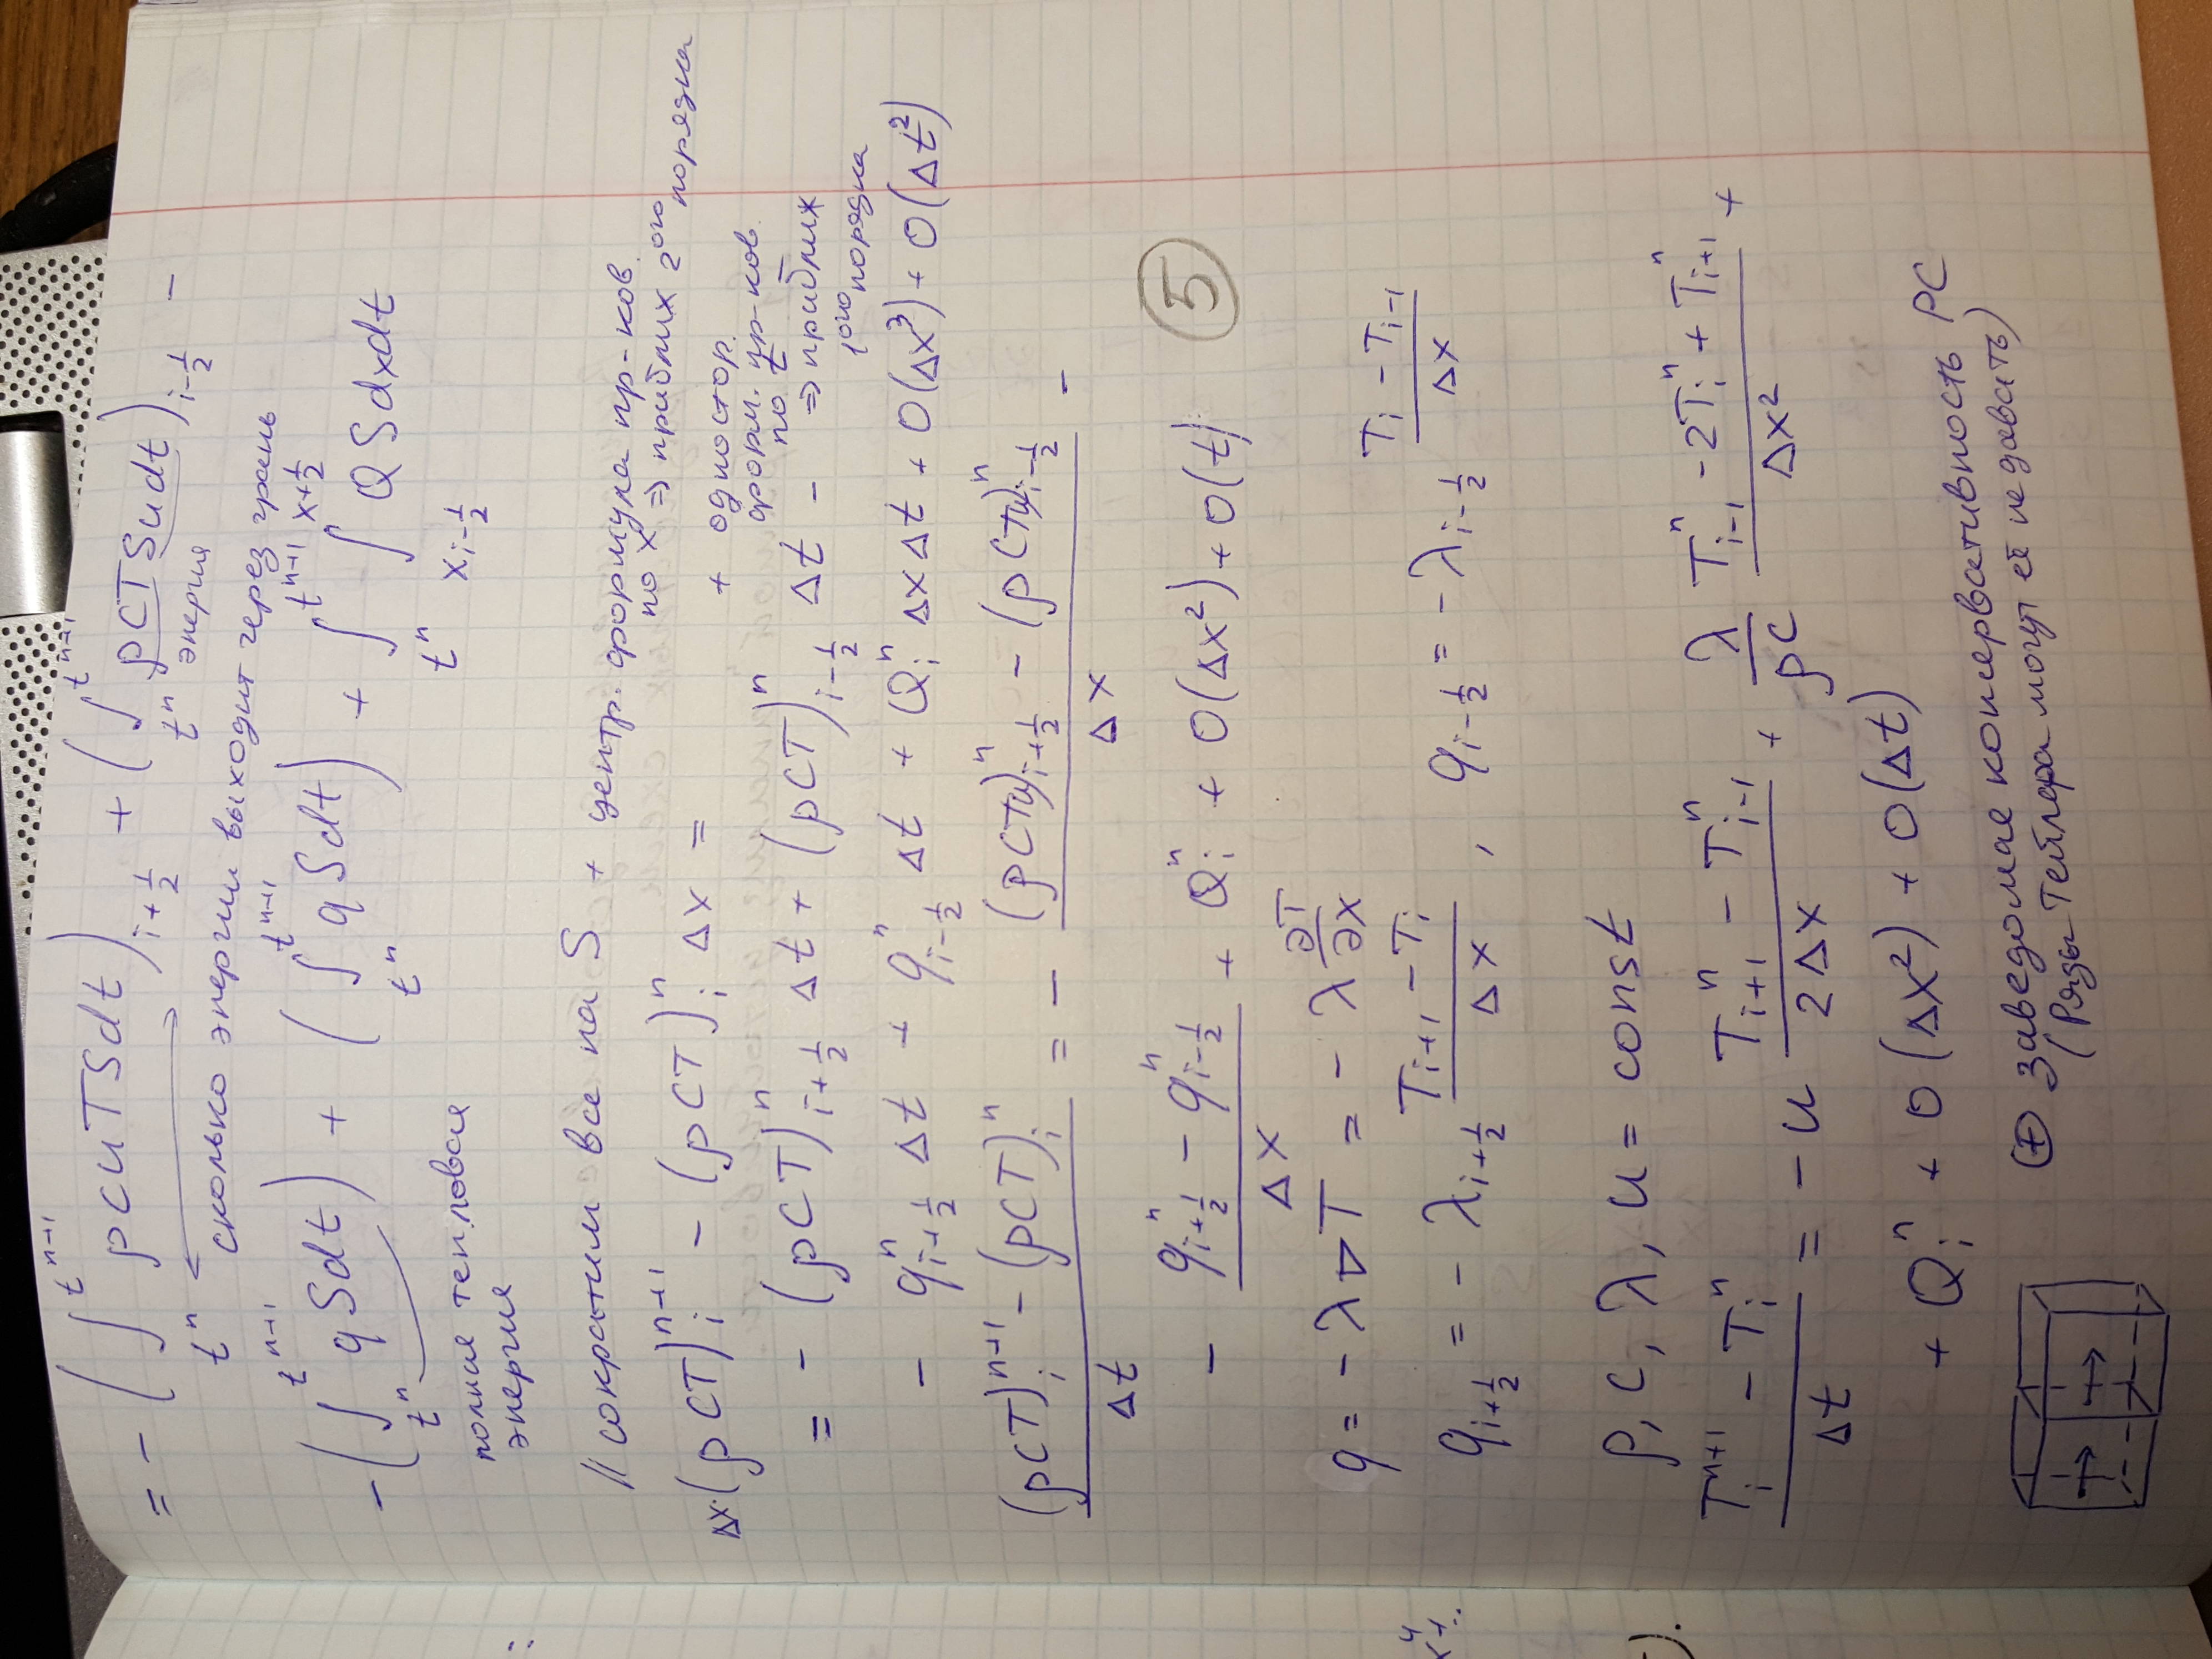 = - ( ∫_{t^n}^{t^{n+1}} ρcuTSdt )_{i+1/2} + ( ∫_{t^n}^{t^{n+1}} ρCTSudt )_{i-1/2} -
энергия
сколько энергии выходит через грань
- ( ∫_{t^n}^{t^{n+1}} qSdt ) + ( ∫_{t^n}^{t^{n+1}} qSdt ) + ∫_{t^n}^{t^{n+1}} ∫_{x_{i-1/2}}^{x+1/2} QSdxdt
полная тепловая
энергия
// сократим все на S + центр. формула пр-ков.
по x ⇒ приближ 2ого порядка
Δx·(ρCT)_i^{n+1} - (ρCT)_i^n Δx =
+ одностор.
форм. пр-ков.
по t
⇒ приближ
1ого порядка
= - (ρCT)_{i+1/2}^n Δt + (ρCT)_{i-1/2}^n Δt -
- q_{i+1/2}^n Δt + q_{i-1/2}^n Δt + Q_i^n ΔxΔt + O(Δx^3) + O(Δt^2)
((ρCT)_i^{n+1} - (ρCT)_i^n)/Δt = - ((ρCTu)_{i+1/2}^n - (ρCTu)_{i-1/2}^n)/Δx -
- (q_{i+1/2}^n - q_{i-1/2}^n)/Δx + Q_i^n + O(Δx^2) + O(t)
5
q = - λ∇T = - λ ∂T/∂x
q_{i+1/2} = - λ_{i+1/2} (T_{i+1} - T_i)/Δx , q_{i-1/2} = - λ_{i-1/2} (T_i - T_{i-1})/Δx
ρ, c, λ, u = const
(T_i^{n+1} - T_i^n)/Δt = - u (T_{i+1}^n - T_{i-1}^n)/(2Δx) + λ/(ρC) (T_{i-1}^n - 2T_i^n + T_{i+1}^n)/Δx^2 +
+ Q_i^n + O(Δx^2) + O(Δt)
⊕ заведомая консервативность РС
(Ряды Тейлора могут её не давать)